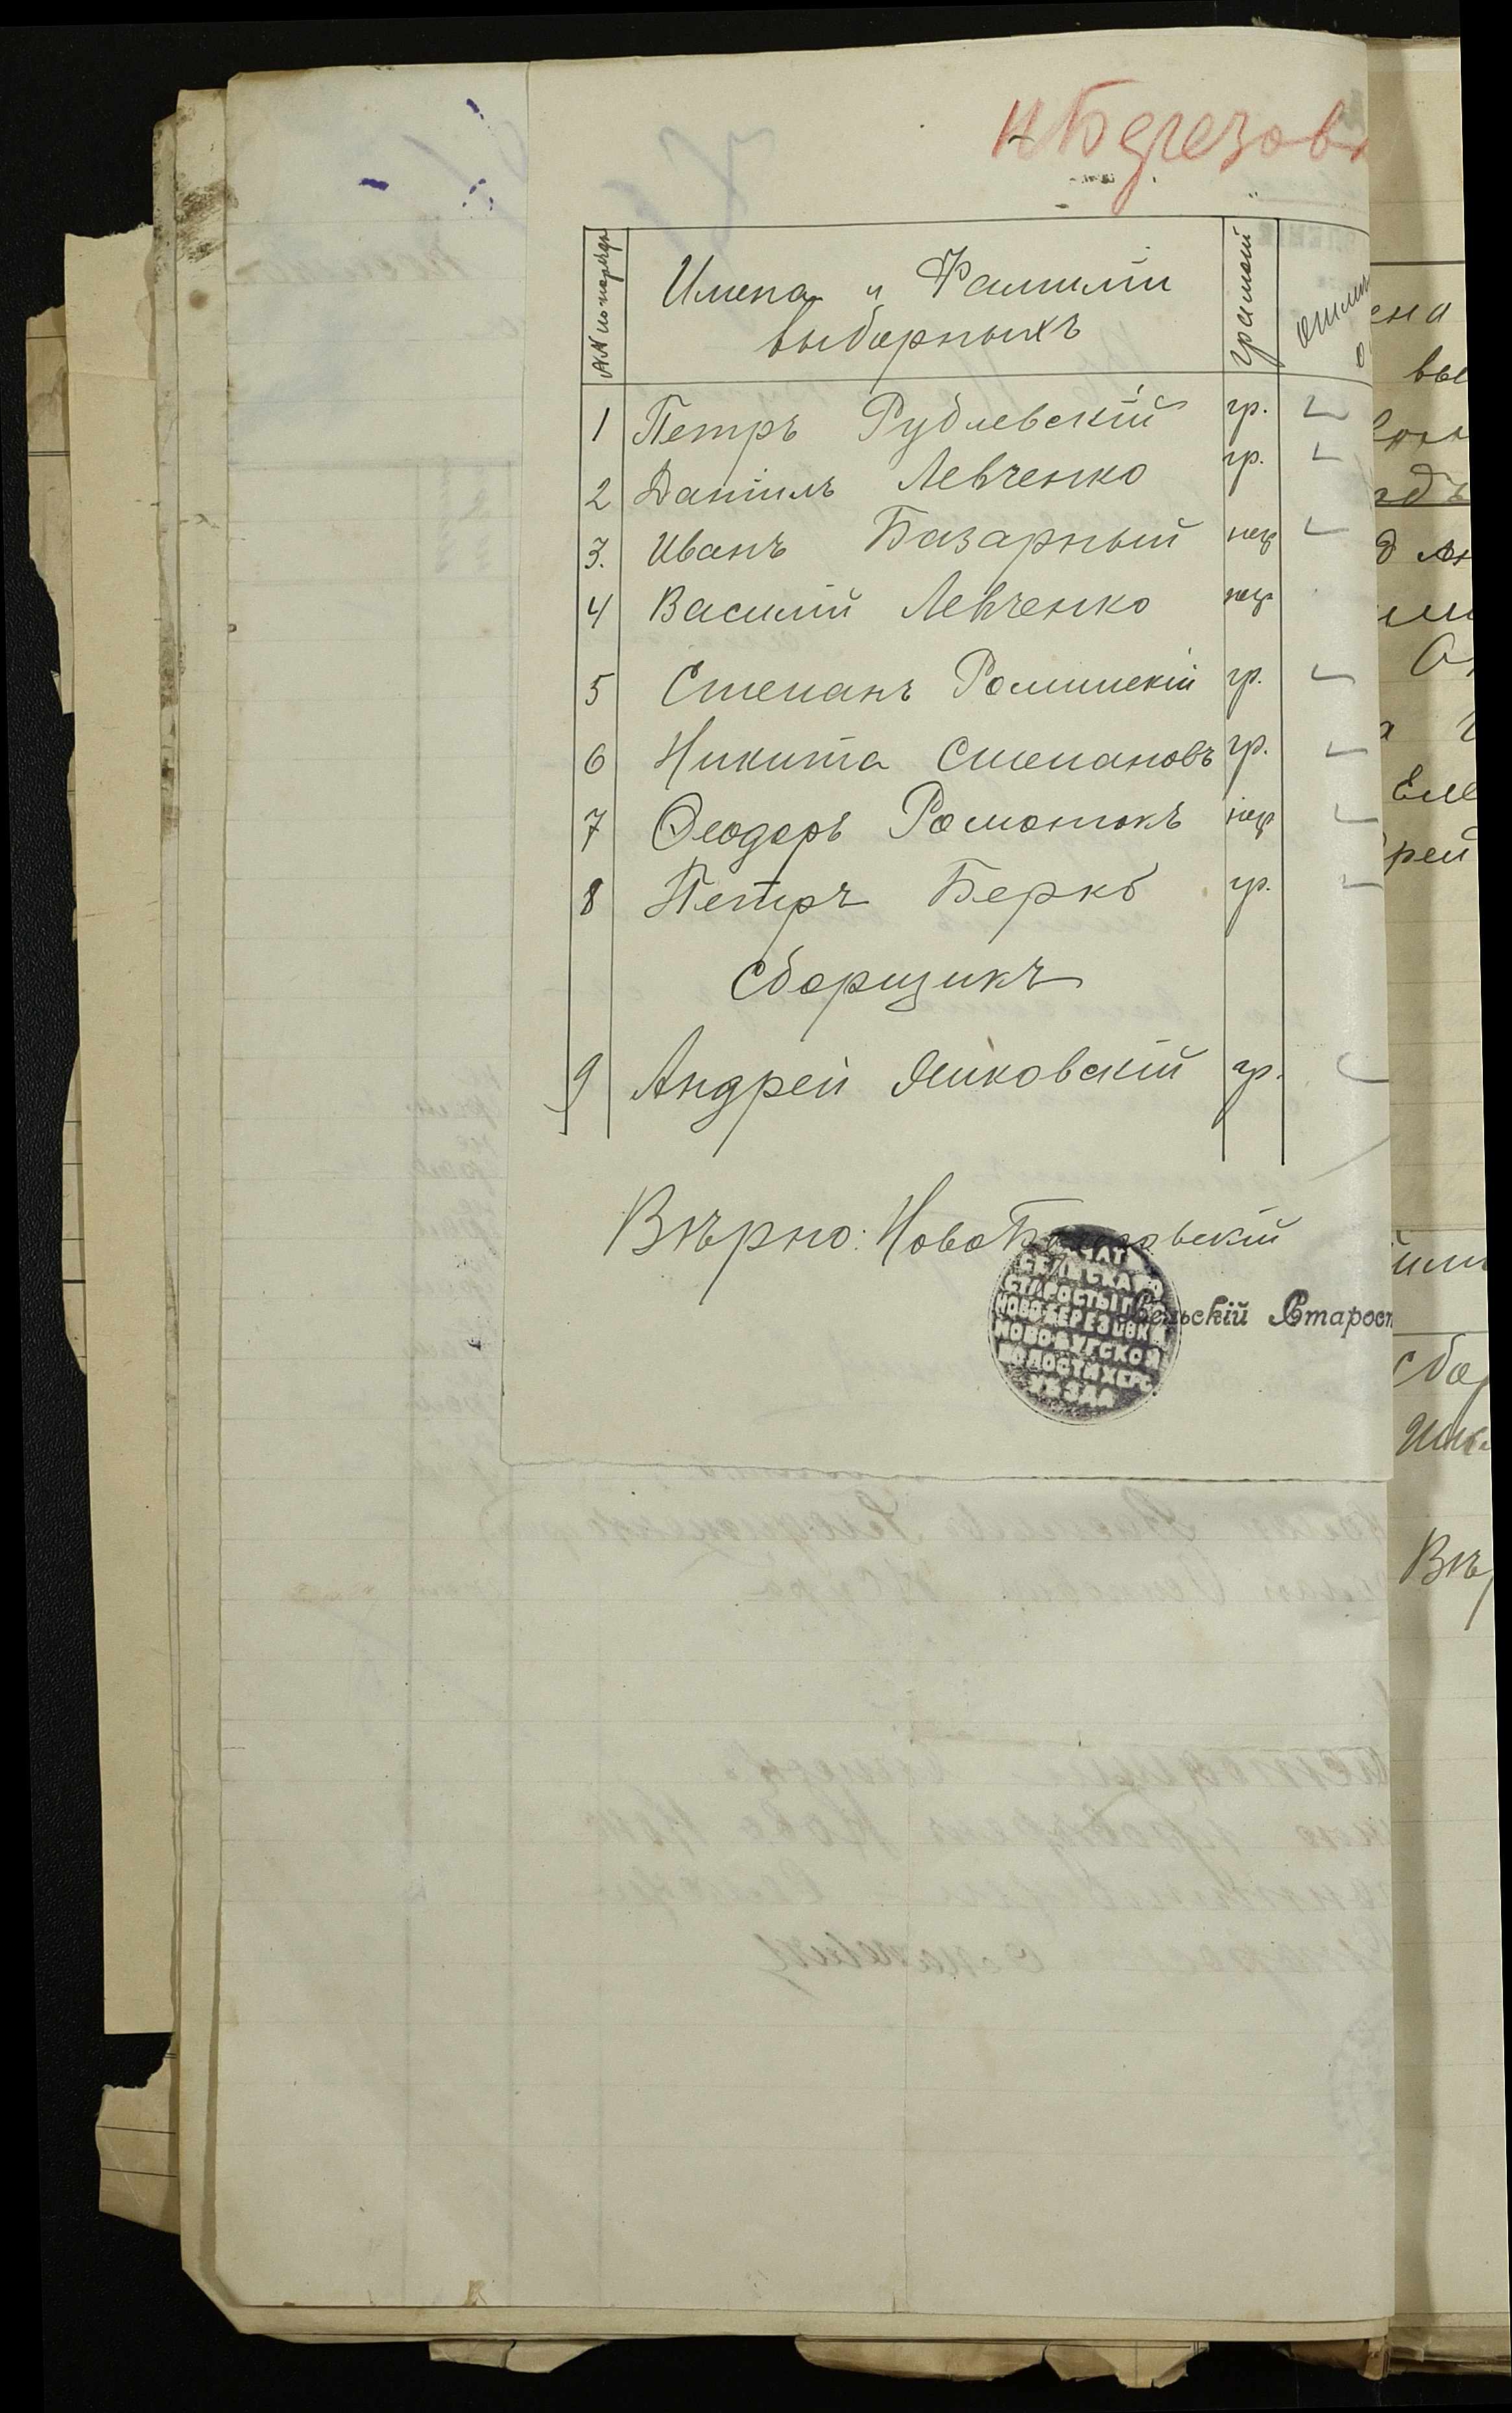 Н Березовк
№№ по поряд.
Имена и Фамиліи
выборныхъ
грамот
1 Петръ Рублевскій гр.
2 Даніилъ Левченко гр.
3. Иванъ Базарный негр
4 Василій Левченко негр
5 Степанъ Роминскій гр.
6 Никита Степановъ гр.
7 Ѳеодоръ Романюкъ негр
8 Петръ Беркъ гр.
Сборщикъ
9 Андрей Яшковскій гр.
Вѣрно: Ново Березовскій
Сельскій Старост
ПЕЧАТ
СЕЛЬСКАРО
СТАРОСТЫ
НОВО-БЕРЕЗОВКИ
НОВО-БУГСКОЙ
ВОЛОСТИ ХЕРС.
УѢЗДА
ена
вы
Еле
рей
сбор
Вѣр